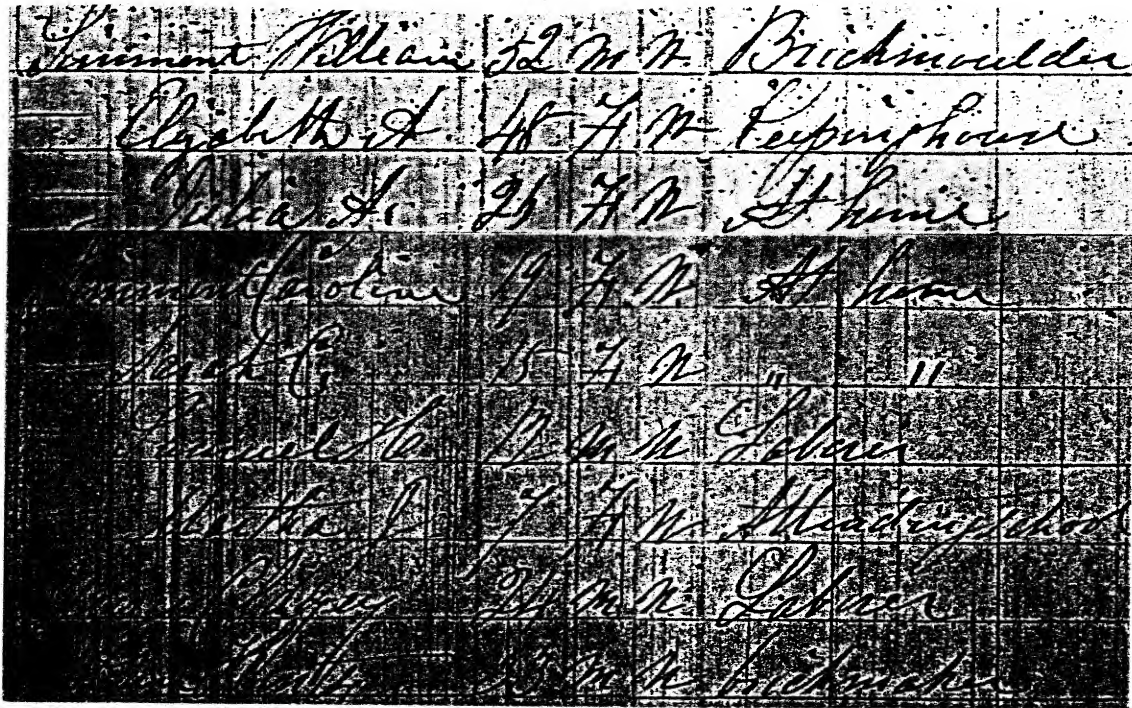 Simmont William 52 M W Brickmoulder
— Elizabeth A 48 F W Keepinghouse
— Julia A. 25 F W At home
Simmont Caroline 19 F W At home
— Sarah C. 15 F W " "
Samuel H. 12 M W Laborer
Martha J 7 F W Attending school
24 M W Laborer
M W brickmaker